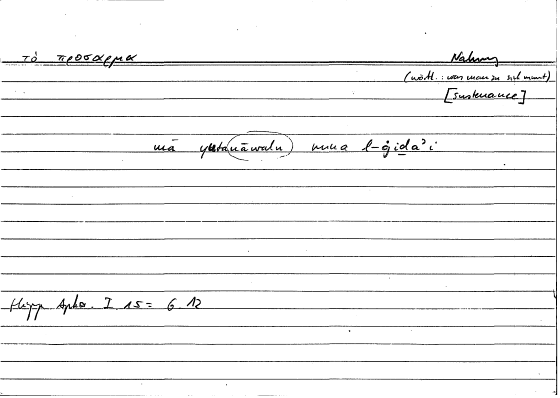 τὸ πρόσαρμα Nahrung
(wörtl.: was man zu sich nimmt)
[sustenance]
mā yutanāwalu mina l-ġiḏāʾi
Hipp Aphor. I 15 = 6 12